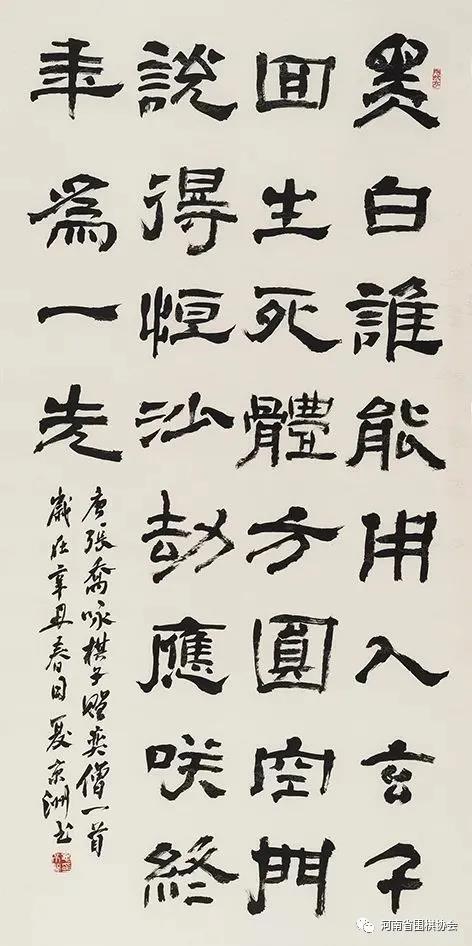 黑白誰能用入玄千
回生死體方圓空門
說得恒沙劫應咲終
年爲一先
唐張喬咏棋子贈奕僧一首
歲在辛丑春日夏京洲书
河南省围棋协会